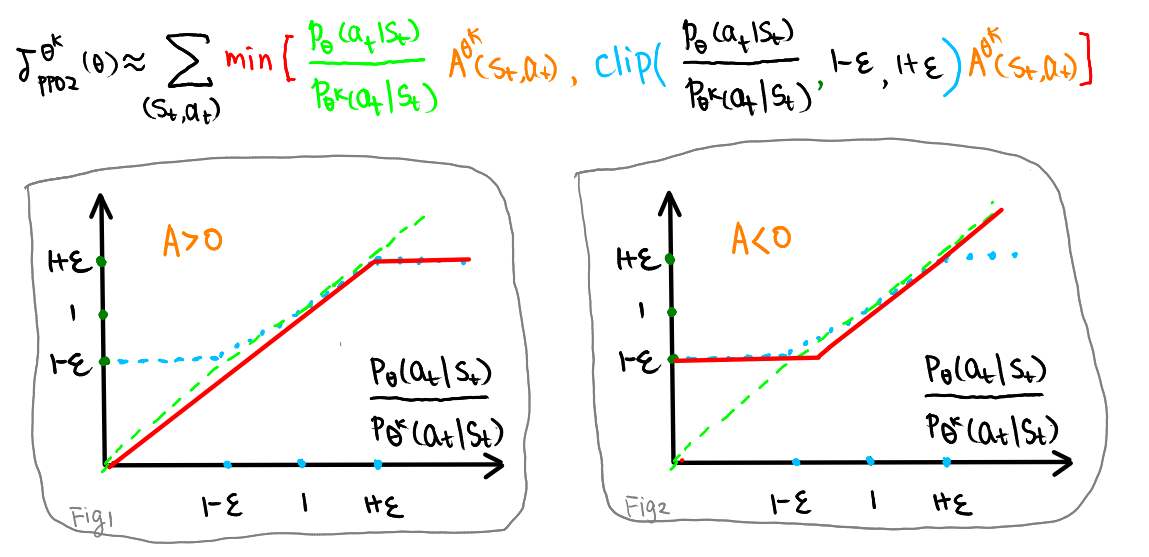 J_{PPO2}^{θ^k}(θ) ≈ ∑_{(s_t,a_t)} min[ \frac{p_θ(a_t|s_t)}{p_{θ^k}(a_t|s_t)} A^{θ^k}(s_t,a_t), clip( \frac{p_θ(a_t|s_t)}{p_{θ^k}(a_t|s_t)}, 1-ε, 1+ε) A^{θ^k}(s_t,a_t)]
A>0
1+ε
1
1-ε
p_θ(a_t|s_t)
p_{θ^k}(a_t|s_t)
1-ε 1 1+ε
Fig1
A<0
1+ε
1
1-ε
p_θ(a_t|s_t)
p_{θ^k}(a_t|s_t)
1-ε 1 1+ε
Fig2